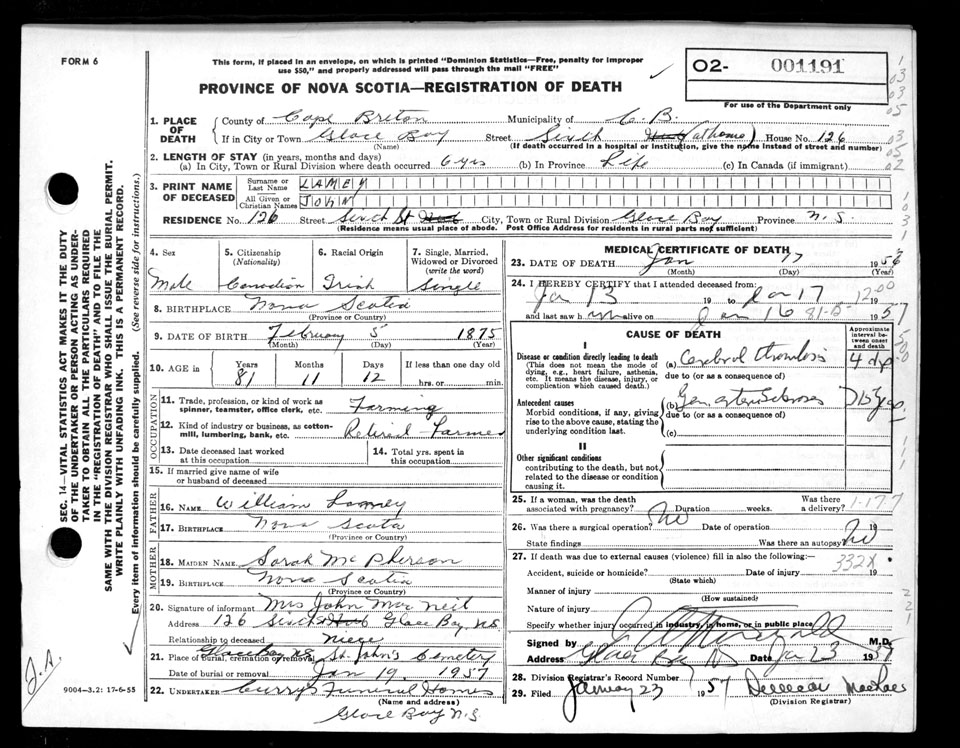 FORM 6
This form, if placed in an envelope, on which is printed "Dominion Statistics—Free, penalty for improper
use $50," and properly addressed will pass through the mail "FREE"
O2- 001191
For use of the Department only
PROVINCE OF NOVA SCOTIA—REGISTRATION OF DEATH
1. PLACE OF DEATH
County of Cape Breton Municipality of C. B.
If in City or Town Glace Bay Street Sixth (at home) House No. 126
(Name) (If death occurred in a hospital or institution, give the name instead of street and number)
2. LENGTH OF STAY (in years, months and days)
(a) In City, Town or Rural Division where death occurred 6 yrs (b) In Province Life (c) In Canada (if immigrant)
3. PRINT NAME OF DECEASED
Surname or Last Name LAMEY
All Given or Christian Names JOHN
RESIDENCE No. 126 Street Sixth St City, Town or Rural Division Glace Bay Province N.S.
(Residence means usual place of abode. Post Office Address for residents in rural parts not sufficient)
4. Sex 5. Citizenship 6. Racial Origin 7. Single, Married,
(Nationality) Widowed or Divorced
(write the word)
Male Canadian Irish Single
8. BIRTHPLACE Nova Scotia
(Province or Country)
9. DATE OF BIRTH February 5 1875
(Month) (Day) (Year)
10. AGE in Years Months Days If less than one day old
81 11 12 hrs. or min.
OCCUPATION
11. Trade, profession, or kind of work as
spinner, teamster, office clerk, etc. Farming
12. Kind of industry or business, as cotton-
mill, lumbering, bank, etc. Retired Farmer
13. Date deceased last worked
at this occupation
14. Total yrs. spent in
this occupation
15. If married give name of wife
or husband of deceased
FATHER
16. NAME William Lamey
17. BIRTHPLACE Nova Scotia
(Province or Country)
MOTHER
18. MAIDEN NAME Sarah McPherson
19. BIRTHPLACE Nova Scotia
(Province or Country)
20. Signature of informant Mrs John MacNeil
Address 126 Sixth Glace Bay N.S.
Relationship to deceased niece
21. Place of burial, cremation or removal Glace Bay N.S. St. John's Cemetery
Date of burial or removal Jan 19 1957
22. UNDERTAKER Curry's Funeral Homes
(Name and address)
Glace Bay N.S.
MEDICAL CERTIFICATE OF DEATH
23. DATE OF DEATH Jan 17 1956
(Month) (Day) (Year)
24. I HEREBY CERTIFY that I attended deceased from:
Jan 13 19 to Jan 17 19
and last saw him alive on Jan 16 1957
CAUSE OF DEATH
Approximate interval between onset and death
I
Disease or condition directly leading to death
(This does not mean the mode of dying, e.g., heart failure, asthenia, etc. It means the disease, injury, or complication which caused death.)
(a) Cerebral thrombosis
due to (or as a consequence of)
Antecedent causes
Morbid conditions, if any, giving rise to the above cause, stating the underlying condition last.
(b) Gen. arteriosclerosis
due to (or as a consequence of)
(c)
II
Other significant conditions
contributing to the death, but not related to the disease or condition causing it.
25. If a woman, was the death Was there
associated with pregnancy? Duration weeks. a delivery?
26. Was there a surgical operation? No Date of operation 19
State findings Was there an autopsy No
27. If death was due to external causes (violence) fill in also the following:
332X
Accident, suicide or homicide? Date of injury 19
(State which)
Manner of injury
(How sustained)
Nature of injury
Specify whether injury occurred in industry, in home, or in public place
Signed by M.D.
Address Glace Bay NS Date Jan 23 1957
28. Division Registrar's Record Number 7
29. Filed January 23 1957
(Division Registrar)
SEC. 14—VITAL STATISTICS ACT MAKES IT THE DUTY
OF THE UNDERTAKER OR PERSON ACTING AS UNDER-
TAKER TO OBTAIN ALL THE PARTICULARS REQUIRED
IN THE "REGISTRATION OF DEATH" AND TO FILE THE
SAME WITH THE DIVISION REGISTRAR WHO SHALL ISSUE THE BURIAL PERMIT.
WRITE PLAINLY WITH UNFADING INK. THIS IS A PERMANENT RECORD.
Every item of information should be carefully supplied. (See reverse side for instructions.)
J.A.
9004-3.2: 17-6-55